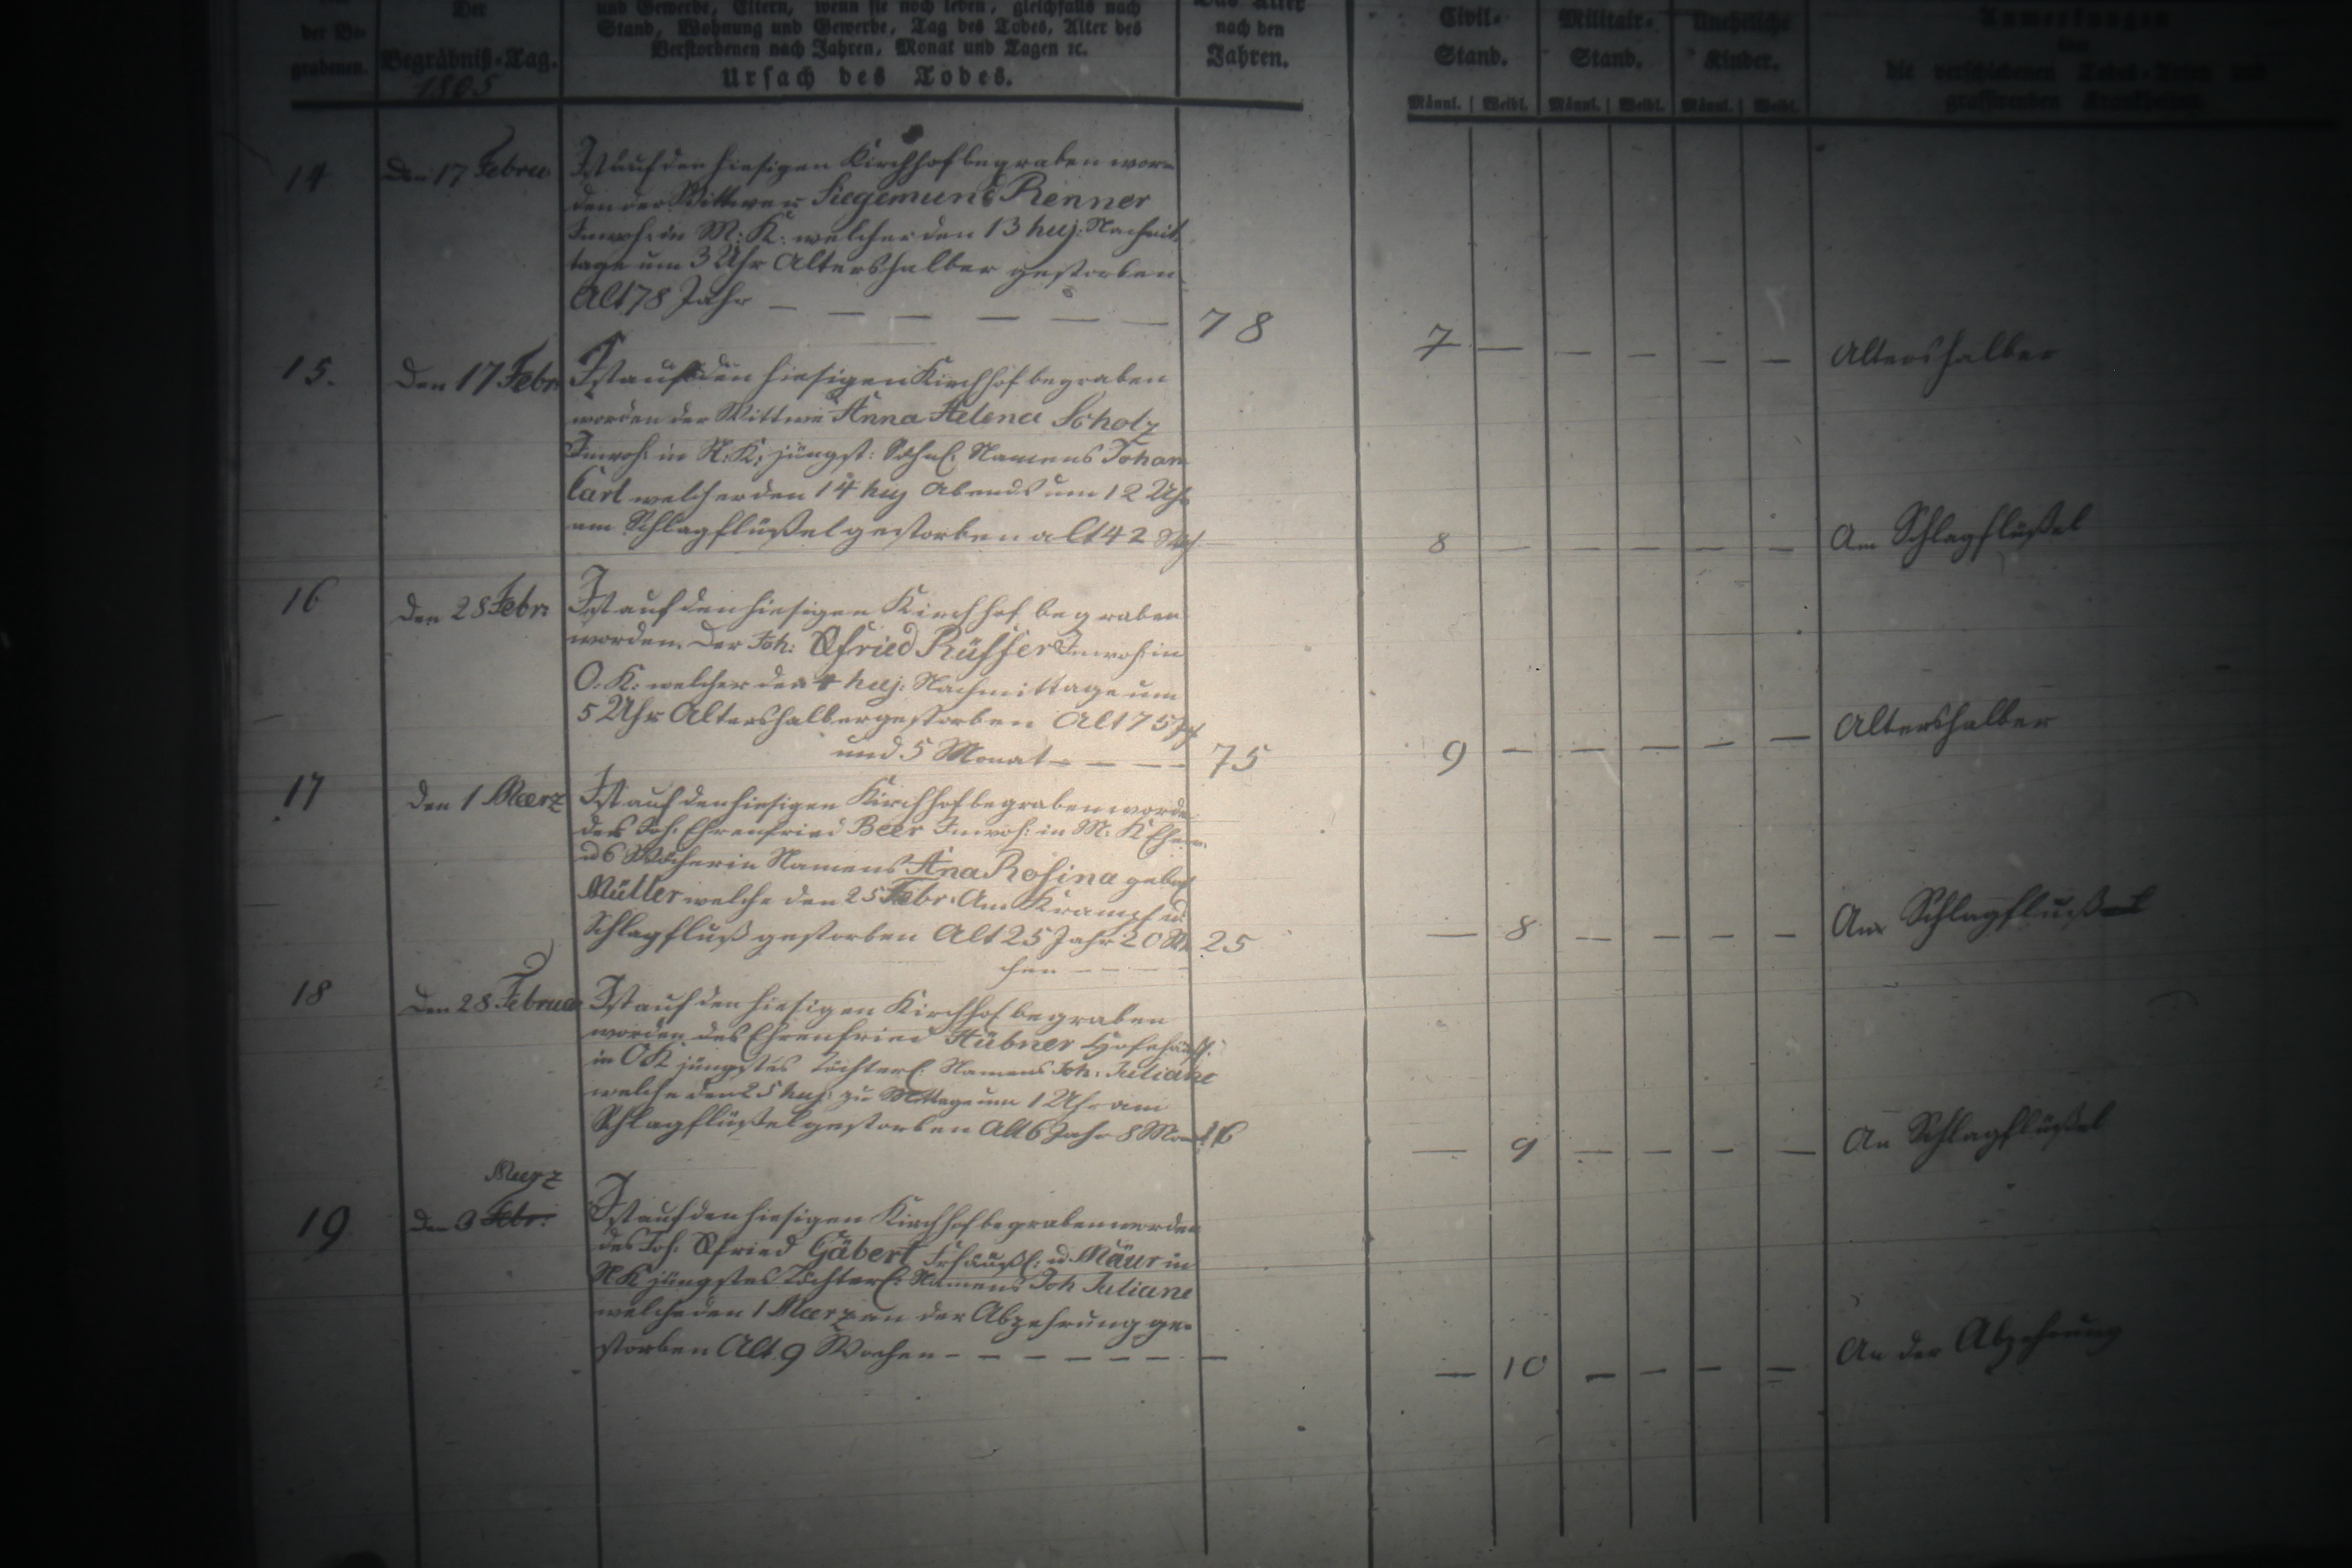 der Be-
grabenen.
Der
Begräbniß-Tag.
1805
und Gewerbe, Eltern, wenn sie noch leben, gleichfalls nach
Stand, Wohnung und Gewerbe, Tag des Todes, Alter des
Verstorbenen nach Jahren, Monat und Tagen ꝛc.
Ursach des Todes.
Das Alter
nach den
Jahren.
Civil-
Stand.
Männl. | Weibl.
Militair-
Stand.
Männl. | Weibl.
Uneheliche
Kinder.
Männl. | Weibl.
Anmerkungen
die verschiedenen Todes-Arten und
grassirenden Krankheiten.
14 Den 17 Febru
Ist auf den hiesigen Kirchhof begraben wor-
den der Wittwer Siegemund Renner
Inwoh: in M: K: welcher den 13 huj: Nachmit-
tage um 3 Uhr Altershalber gestorben
Alt 78 Jahr — — — — — — 78 7 — — — — — Altershalber
15. Den 17 Febr:
Ist auf den hiesigen Kirchhof begraben
worden der Wittwe Anna Helena Scholz
Inwoh: in N: K: jüngst: Söhnl: Namens Johan
Carl welcher den 14 huj Abends um 12 Uhr
am Schlagflüßel gestorben alt 42 8 — — — — — Am Schlagflüßel
16 Den 28 Febr:
Ist auf den hiesigen Kirchhof begraben
worden. Der Joh: Gfried Rüffer Inwoh: in
O: K: welcher den 4 huj: Nachmittage um
5 Uhr Altershalber gestorben Alt 75 J
und 5 Monat — — — — 75 9 — — — — — Altershalber
17 Den 1 Maerz
Ist auf den hiesigen Kirchhof begraben worde
des Joh: Ehrenfried Beer Inwoh: in M: K
Namens Ana Rosina geboh
Müller welche den 25 Febr: Am Krampf u
Schlagfluß gestorben Alt 25 Jahr 20 W 25 — 8 — — — — Am Schlagfluß
chen — — — —
18 Den 28 Februar
Ist auf den hiesigen Kirchhof begraben
worden des Ehrenfried Hübner
in OK jüngstes Töchterl: Namens Joh: Juliane
welche den 25 huj: zu Mittage um 1 Uhr am
Schlagflüßel gestorben Alt 6 Jahr 8 Monat 6 — 9 — — — — An Schlagflüßel
Merz
19 Den 3 Febr:
Ist auf den hiesigen Kirchhof begraben worden
des Joh: Gfried Gäbert Frhäußl: u Mäur in
NK jüngstes Töchterl: Namens Joh Juliane
welche den 1 Maerz an der Abzehrung ge-
storben Alt 9 Wochen — — — — — — — — 10 — — — — An der Abzehrung